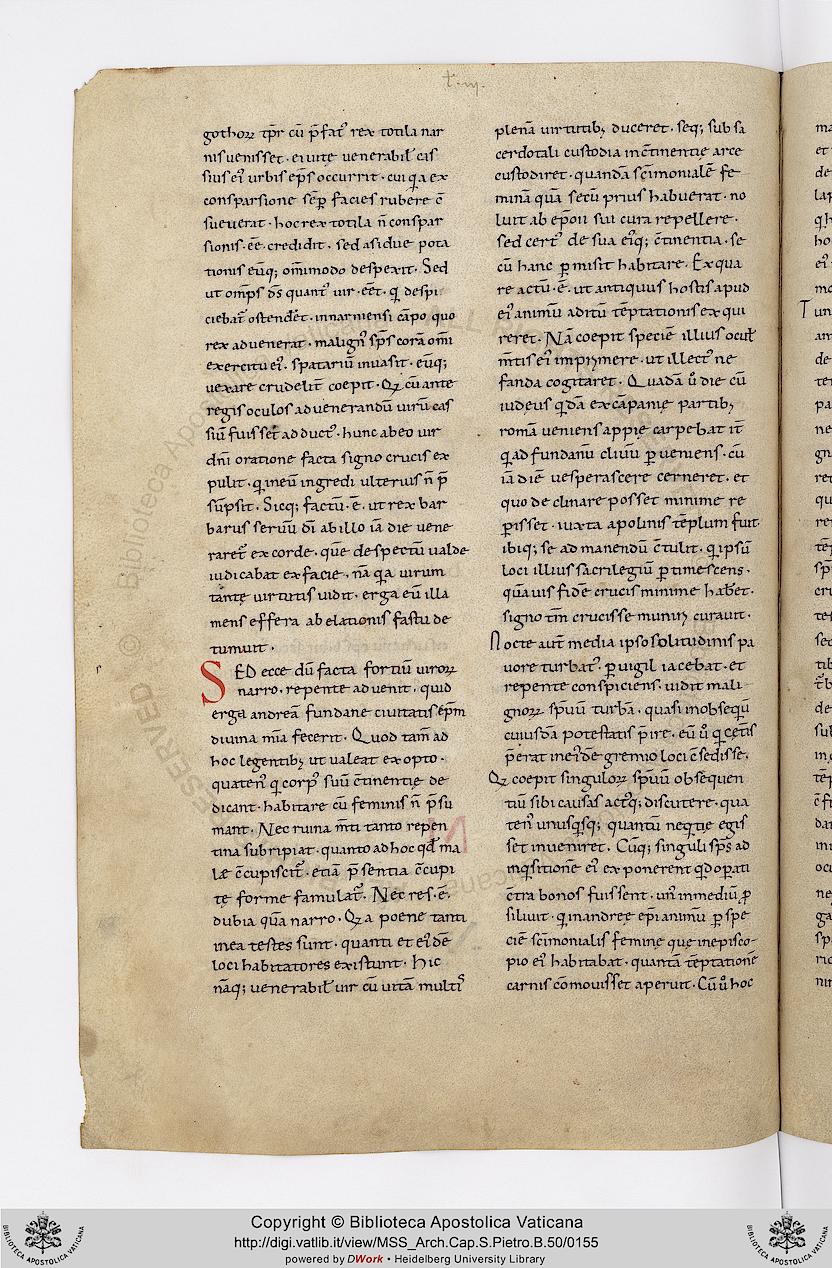 gothoꝝ tp̄r cū p̄fat᾽ rex totila nar
nis venisset · ei vite venerabil̄ cas
sius ei᾽ urbis ep̄s occurrit · cui q̄a ex
consparsione sēp facies rubere c̄
sueverat · hoc rex totila n̄ conspar
sionis · ēe credidit · sed asidue pota
tionis eūq; om̄imodo despexit · Sed
ut om̄ps d̄s quant᾽ vir · eēt · q̄ despi
ciebat᾽ ostendēt · in narniensi cāpo quo
rex advenerat · malign᾽ sp̄s corā om̄i
exercitu ei᾽ · spatariū invasit · eūq;
vexare crudelit̄ coepit · Qꝫ cū ante
regis oculos ad venerandū virū cas
siū fuisset adduct᾽ · hunc ab eo vir
dn̄i oratione facta signo crucis ex
pulit · q̄ in eū ingredi ulterius n̄ p̄
sūpsit · Sicq; factū · ē · ut rex bar
barus servū dī ab illo iā die vene
raret᾽ ex corde · quē despectū valde
iudicabat ex facie · nā q̄a virum
tantę virtutis vidit · erga eū illa
mens effera ab elationis fastu de
tumuit ·
SED ecce dū facta fortiū viroꝝ
narro · repente advenit · quid
erga andreā fundane civitatis ep̄m
divina mīa fecerit · Quod tam̄ ad
hoc legentibꝫ ut valeat exopto ·
quaten᾽ q̄ corp᾽ suū c̄tinentię de
dicant · habitare cū feminis n̄ p̄su
mant · Nec ruina m̄ti tanto repen
tina subripiat · quanto ad hoc qd̄ ma
lę c̄cupiscit᾽ · etiā p̄sentia c̄cupi
te forme famulat᾽ · Nec res · ē ·
dubia quā narro · Qꝫ a poene tanti
in ea testes sunt · quanti et ei᾽dē
loci habitatores existunt · Hic
nāq; venerabil̄ vir cū vitā multis
plenā virtutibꝫ duceret · seq; sub sa
cerdotali custodia in c̄tinentie arce
custodiret · quandā sc̄imonialē fe
minā quā secū prius habuerat · no
luit ab ep̄oii sui cura repellere ·
sed cert᾽ de sua ei᾽q; c̄tinentia · se
cū hanc p̱misit habitare · Ex qua
re actū · ē · ut antiquus hostis apud
ei᾽ animū aditū tēptationis exqui
reret · Nā coepit speciē illius ocul̄
m̄tis ei᾽ impꝛymere · ut illect᾽ ne
fanda cogitaret · Quadā v̊ die cū
iudeus q̄dā ex cāpanie partibꝫ
romā veniens appię carpebat it̄
q̄ ad fundanū clivū p̱veniens · cū
iā diē vesperascere cerneret · et
quo declinare posset minime re
p̱isset · iuxta apolinis tēplum fuit ·
ibiq; se ad manendū c̄tulit · q̄ ipsū
loci illius sacrilegiū p̱timescens ·
quāvis fidē crucis minime habēt ·
signo tm̄ crucis se munirj curavit ·
Nocte aut̄ media ipso solitudinis pa
vore turbat᾽ · p̱vigil iacebat · et
repente conspiciens · vidit mali
gnoꝝ spūum turbā · quasi in obsequiū
cuiusdā potestatis p̄ire · eū v̊ q̄ cetis̄
p̄erat in ei᾽dē gremio loci c̄sedisse ·
Qꝫ coepit singuloꝝ spūum obsequen
tiū sibi causas act᾽q; discutere · qua
ten᾽ unusq̄sq; quantū neq̄tię egis
set inveniret · Cūq; singuli sp̄s ad
inq̄sitionē ei᾽ exponerent qd̄ op̱ati
c̄tra bonos fuissent · un᾽ in mediū ꝓ
siluit · q̄ in andreę ep̄i animū p̱ spe
ciē sc̄imonialis feminę quę in episco
pio ei᾽ habitabat · quantā tēptationē
carnis cōmovisset aperuit · Cū v̊ hoc
Copyright © Biblioteca Apostolica Vaticana
http://digi.vatlib.it/view/MSS_Arch.Cap.S.Pietro.B.50/0155
powered by DWork • Heidelberg University Library